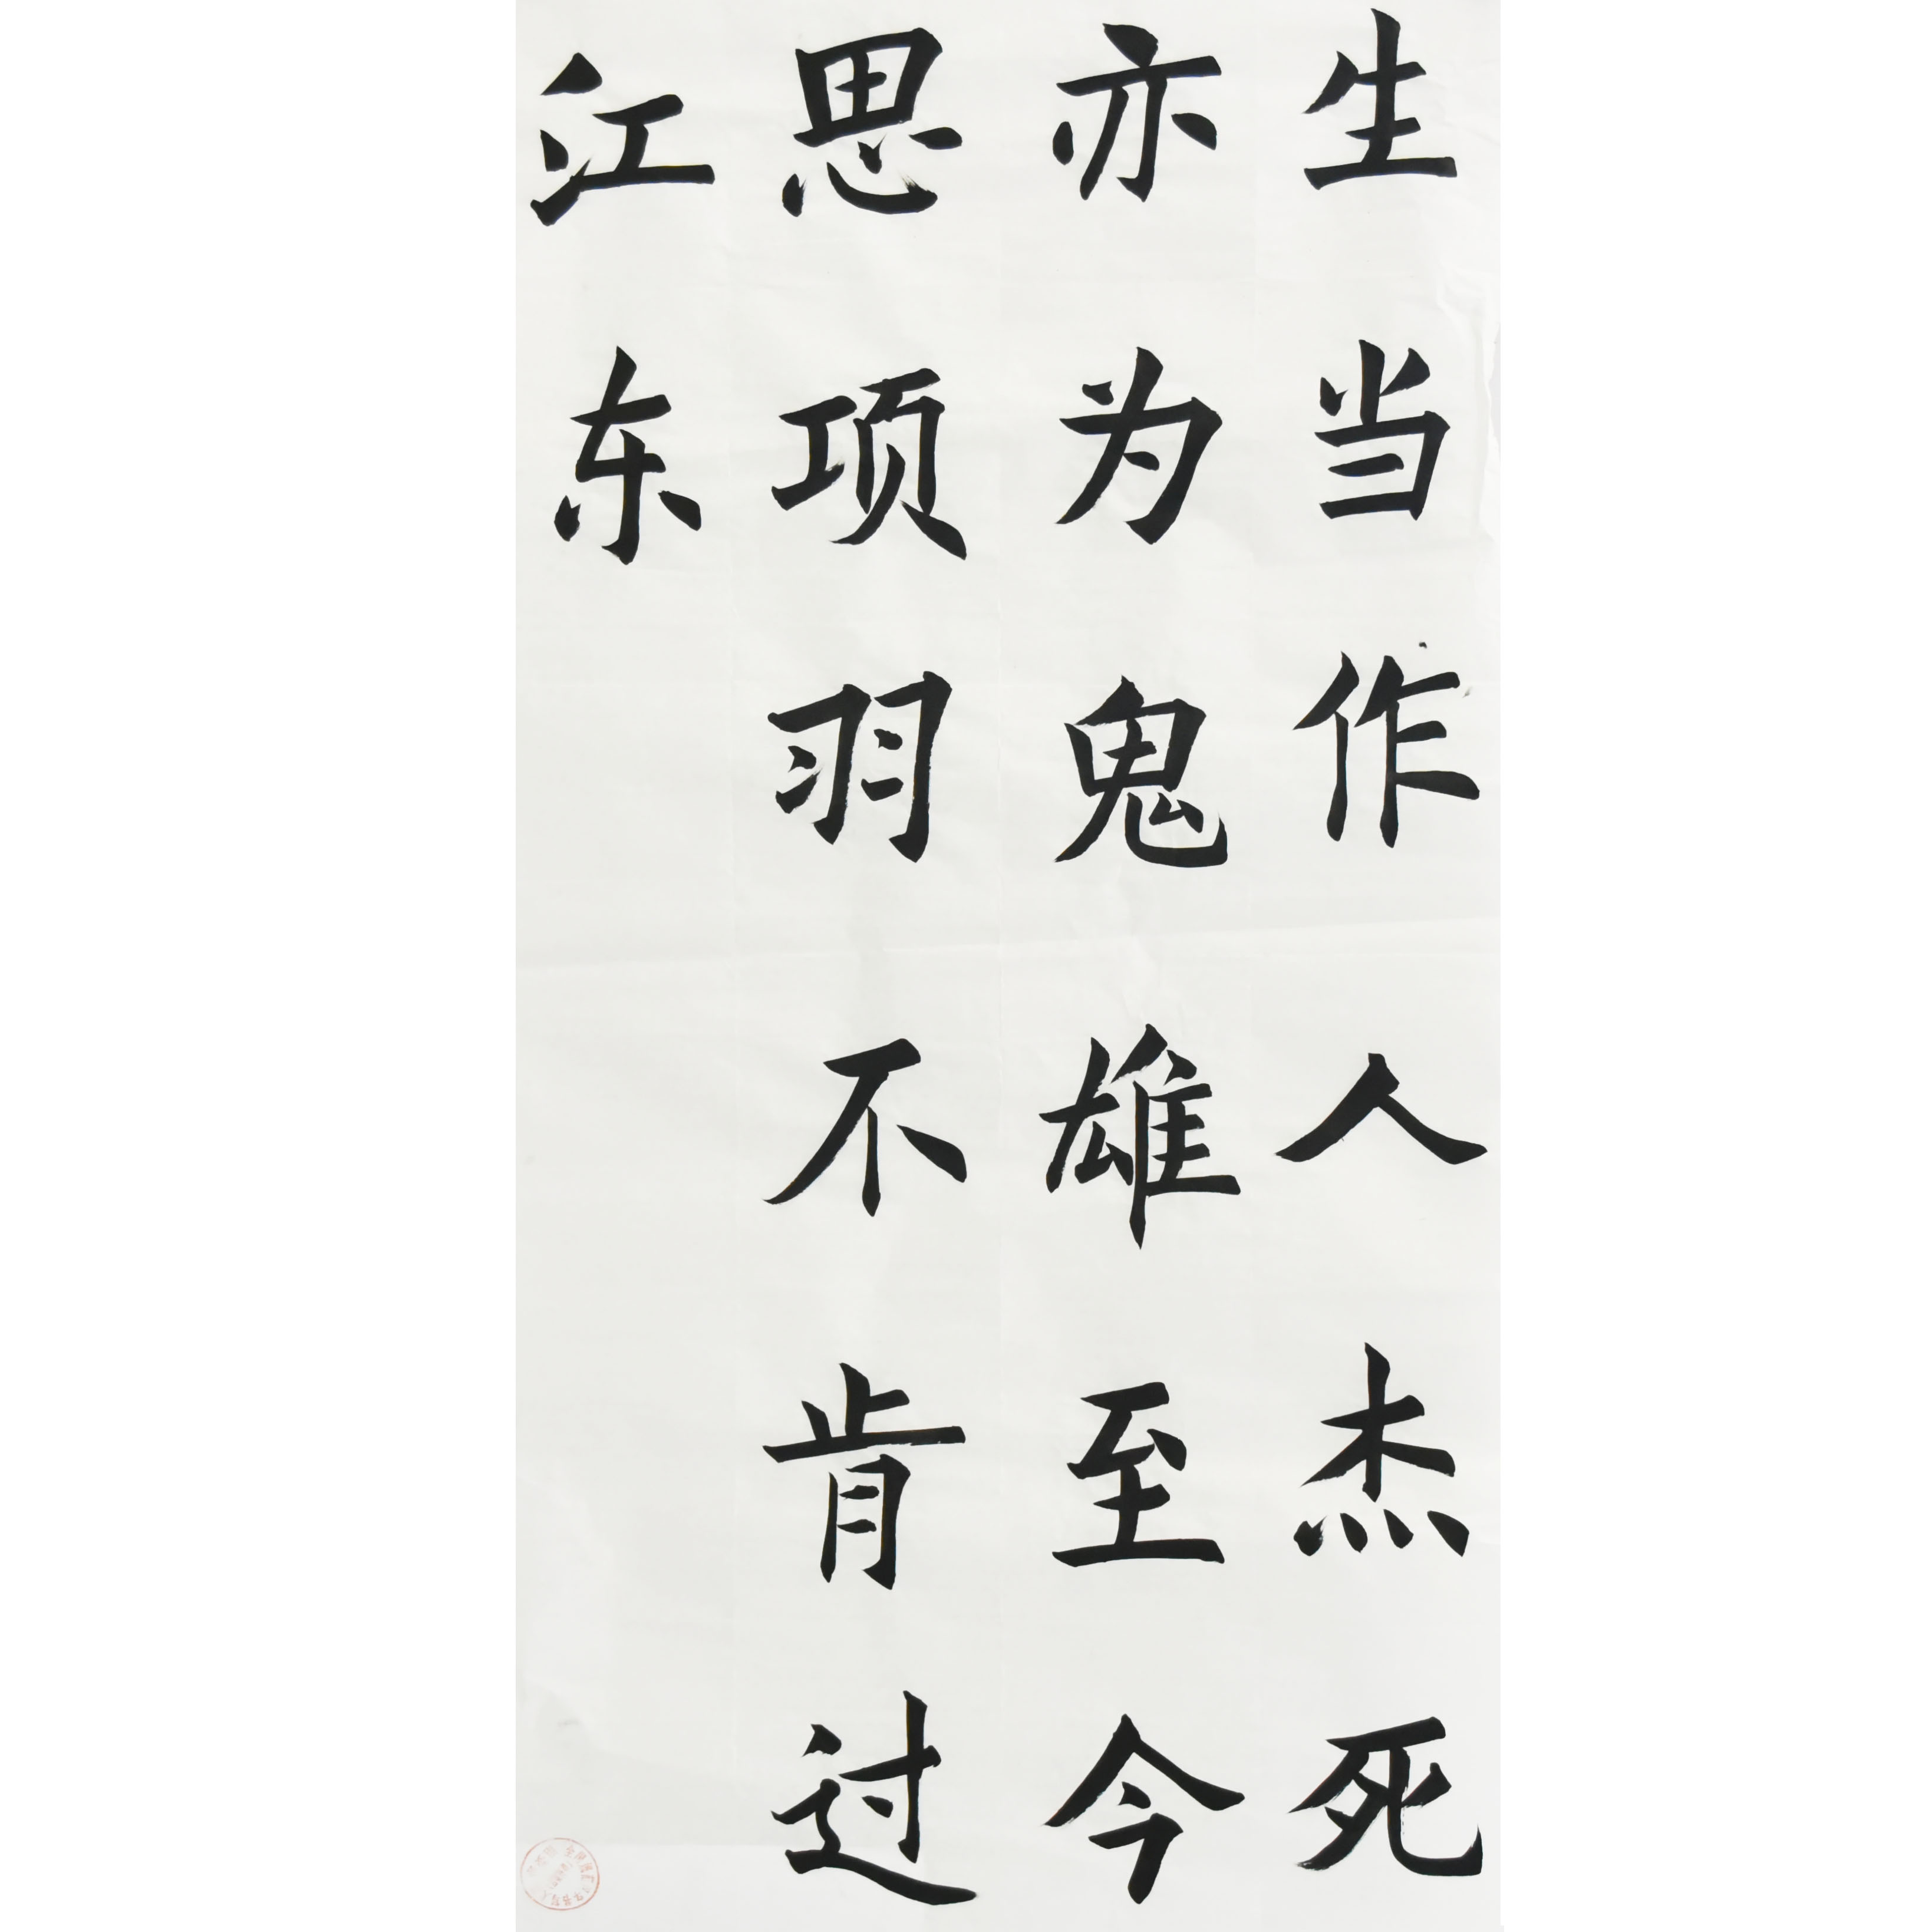 生当作人杰死
亦为鬼雄至今
思项羽不肯过
江东